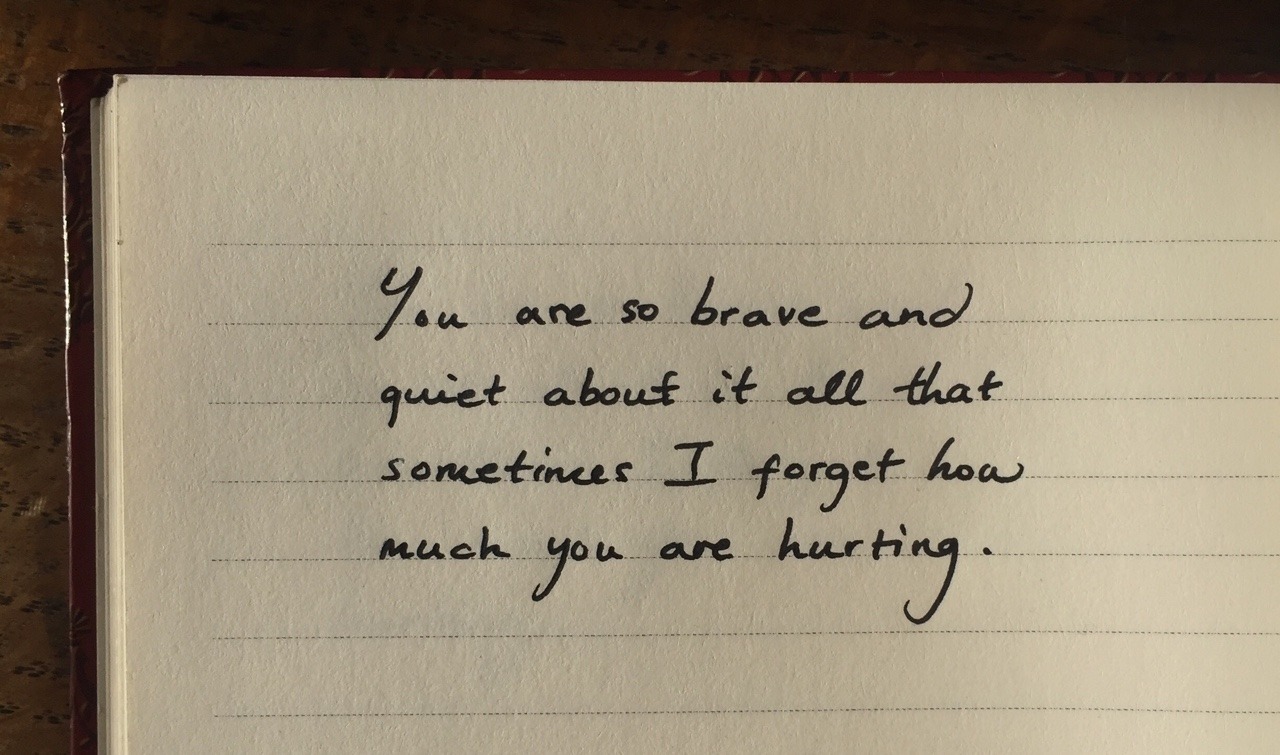 You are so brave and
quiet about it all that
sometimes I forget how
much you are hurting.